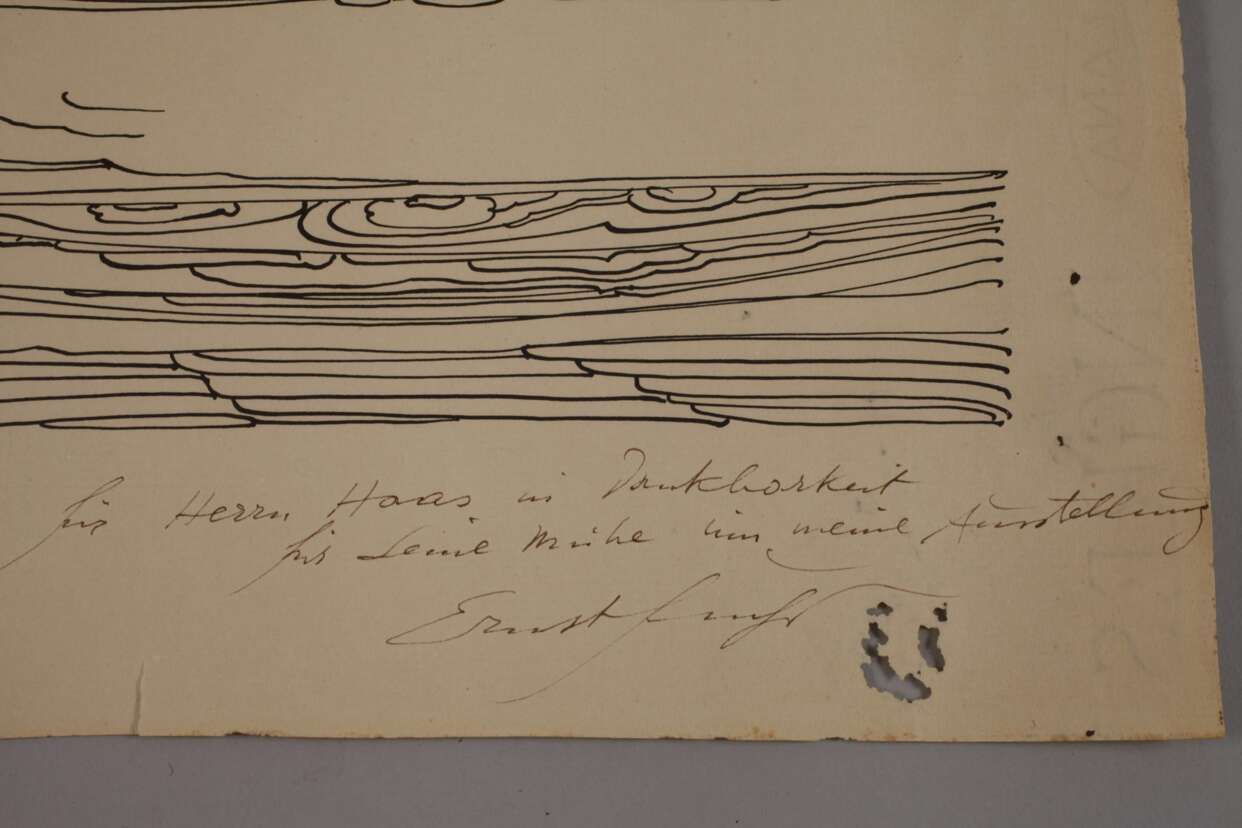 für Herrn Haas in Dankbarkeit
für seine Mühe um meine Ausstellung
Ernst Fuchs